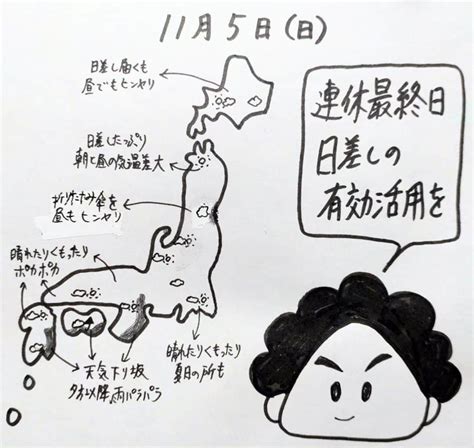 11月5日(日)
日差し届くも
昼でもヒンヤリ
連休最終日
日差しの
有効活用を
日差したっぷり
朝と昼の気温差大
折りたたみ傘を
昼もヒンヤリ
晴れたりくもったり
ポカポカ
天気下り坂
夕方以降雨パラパラ
晴れたりくもったり
夏日の所も